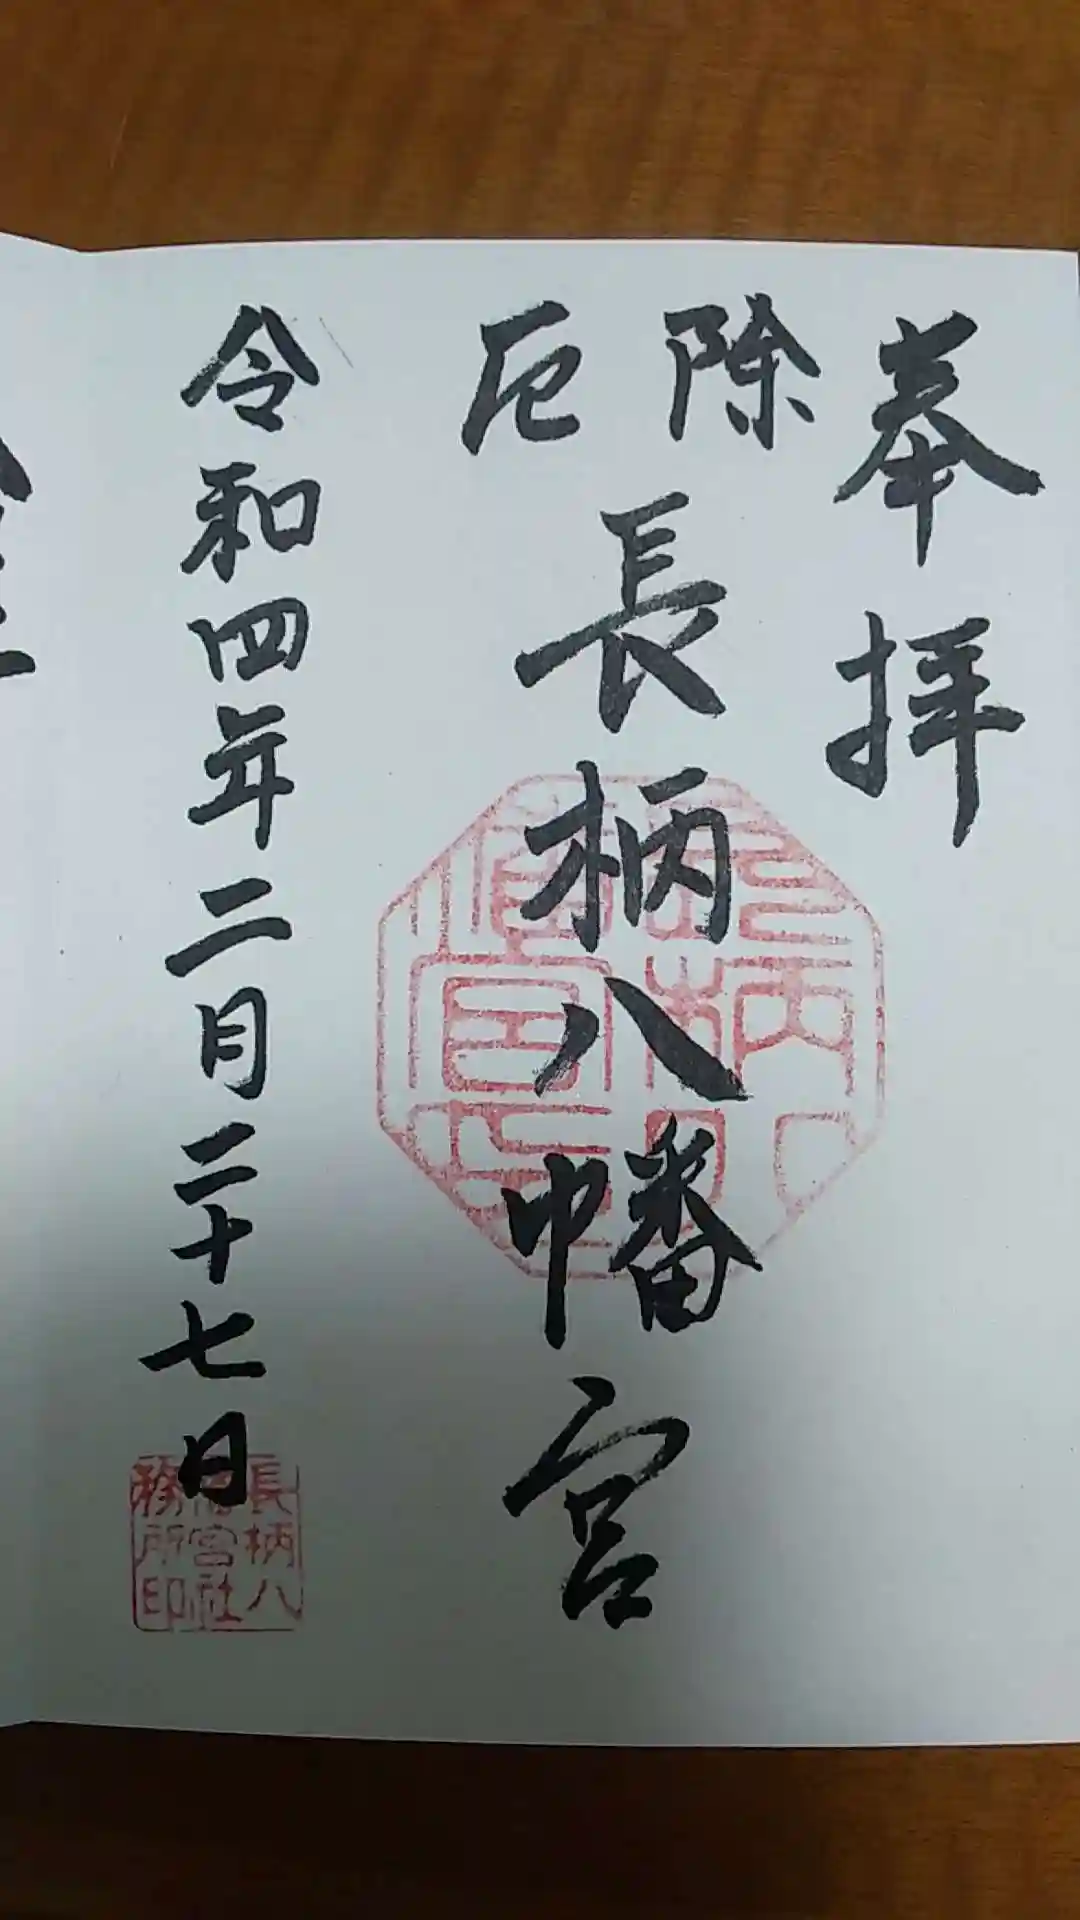 奉拝
除厄
長柄八幡宮
令和四年二月二十七日
長柄八
幡宮社
務所印